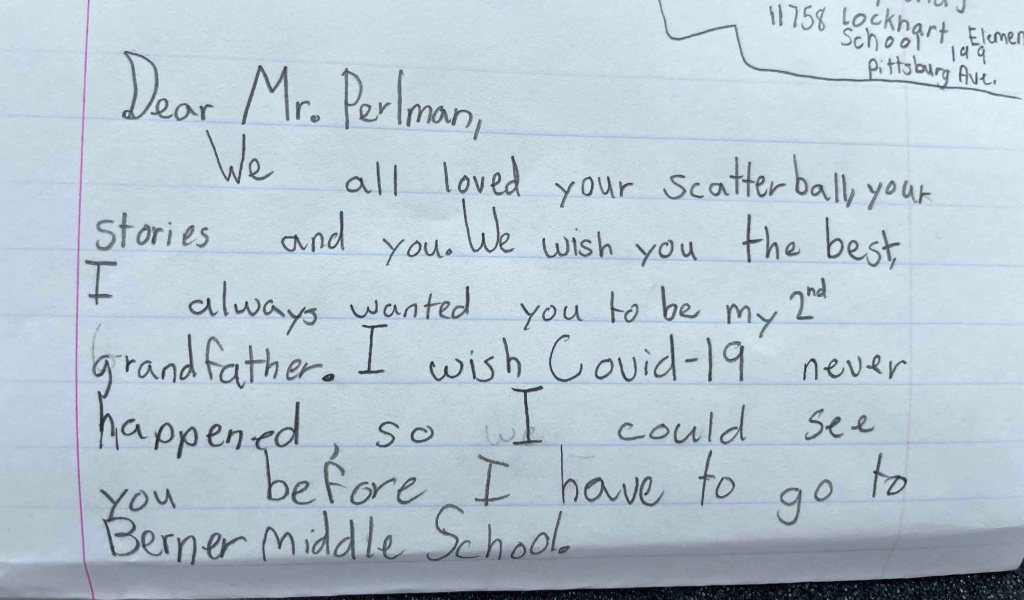 11758 Lockhart Elemen
School 149
Pittsburg Ave.
Dear Mr. Perlman,
We all loved your scatter ball, your
stories and you. We wish you the best,
I always wanted you to be my 2nd
grandfather. I wish Covid-19 never
happened, so I could see
you before I have to go to
Berner Middle School.